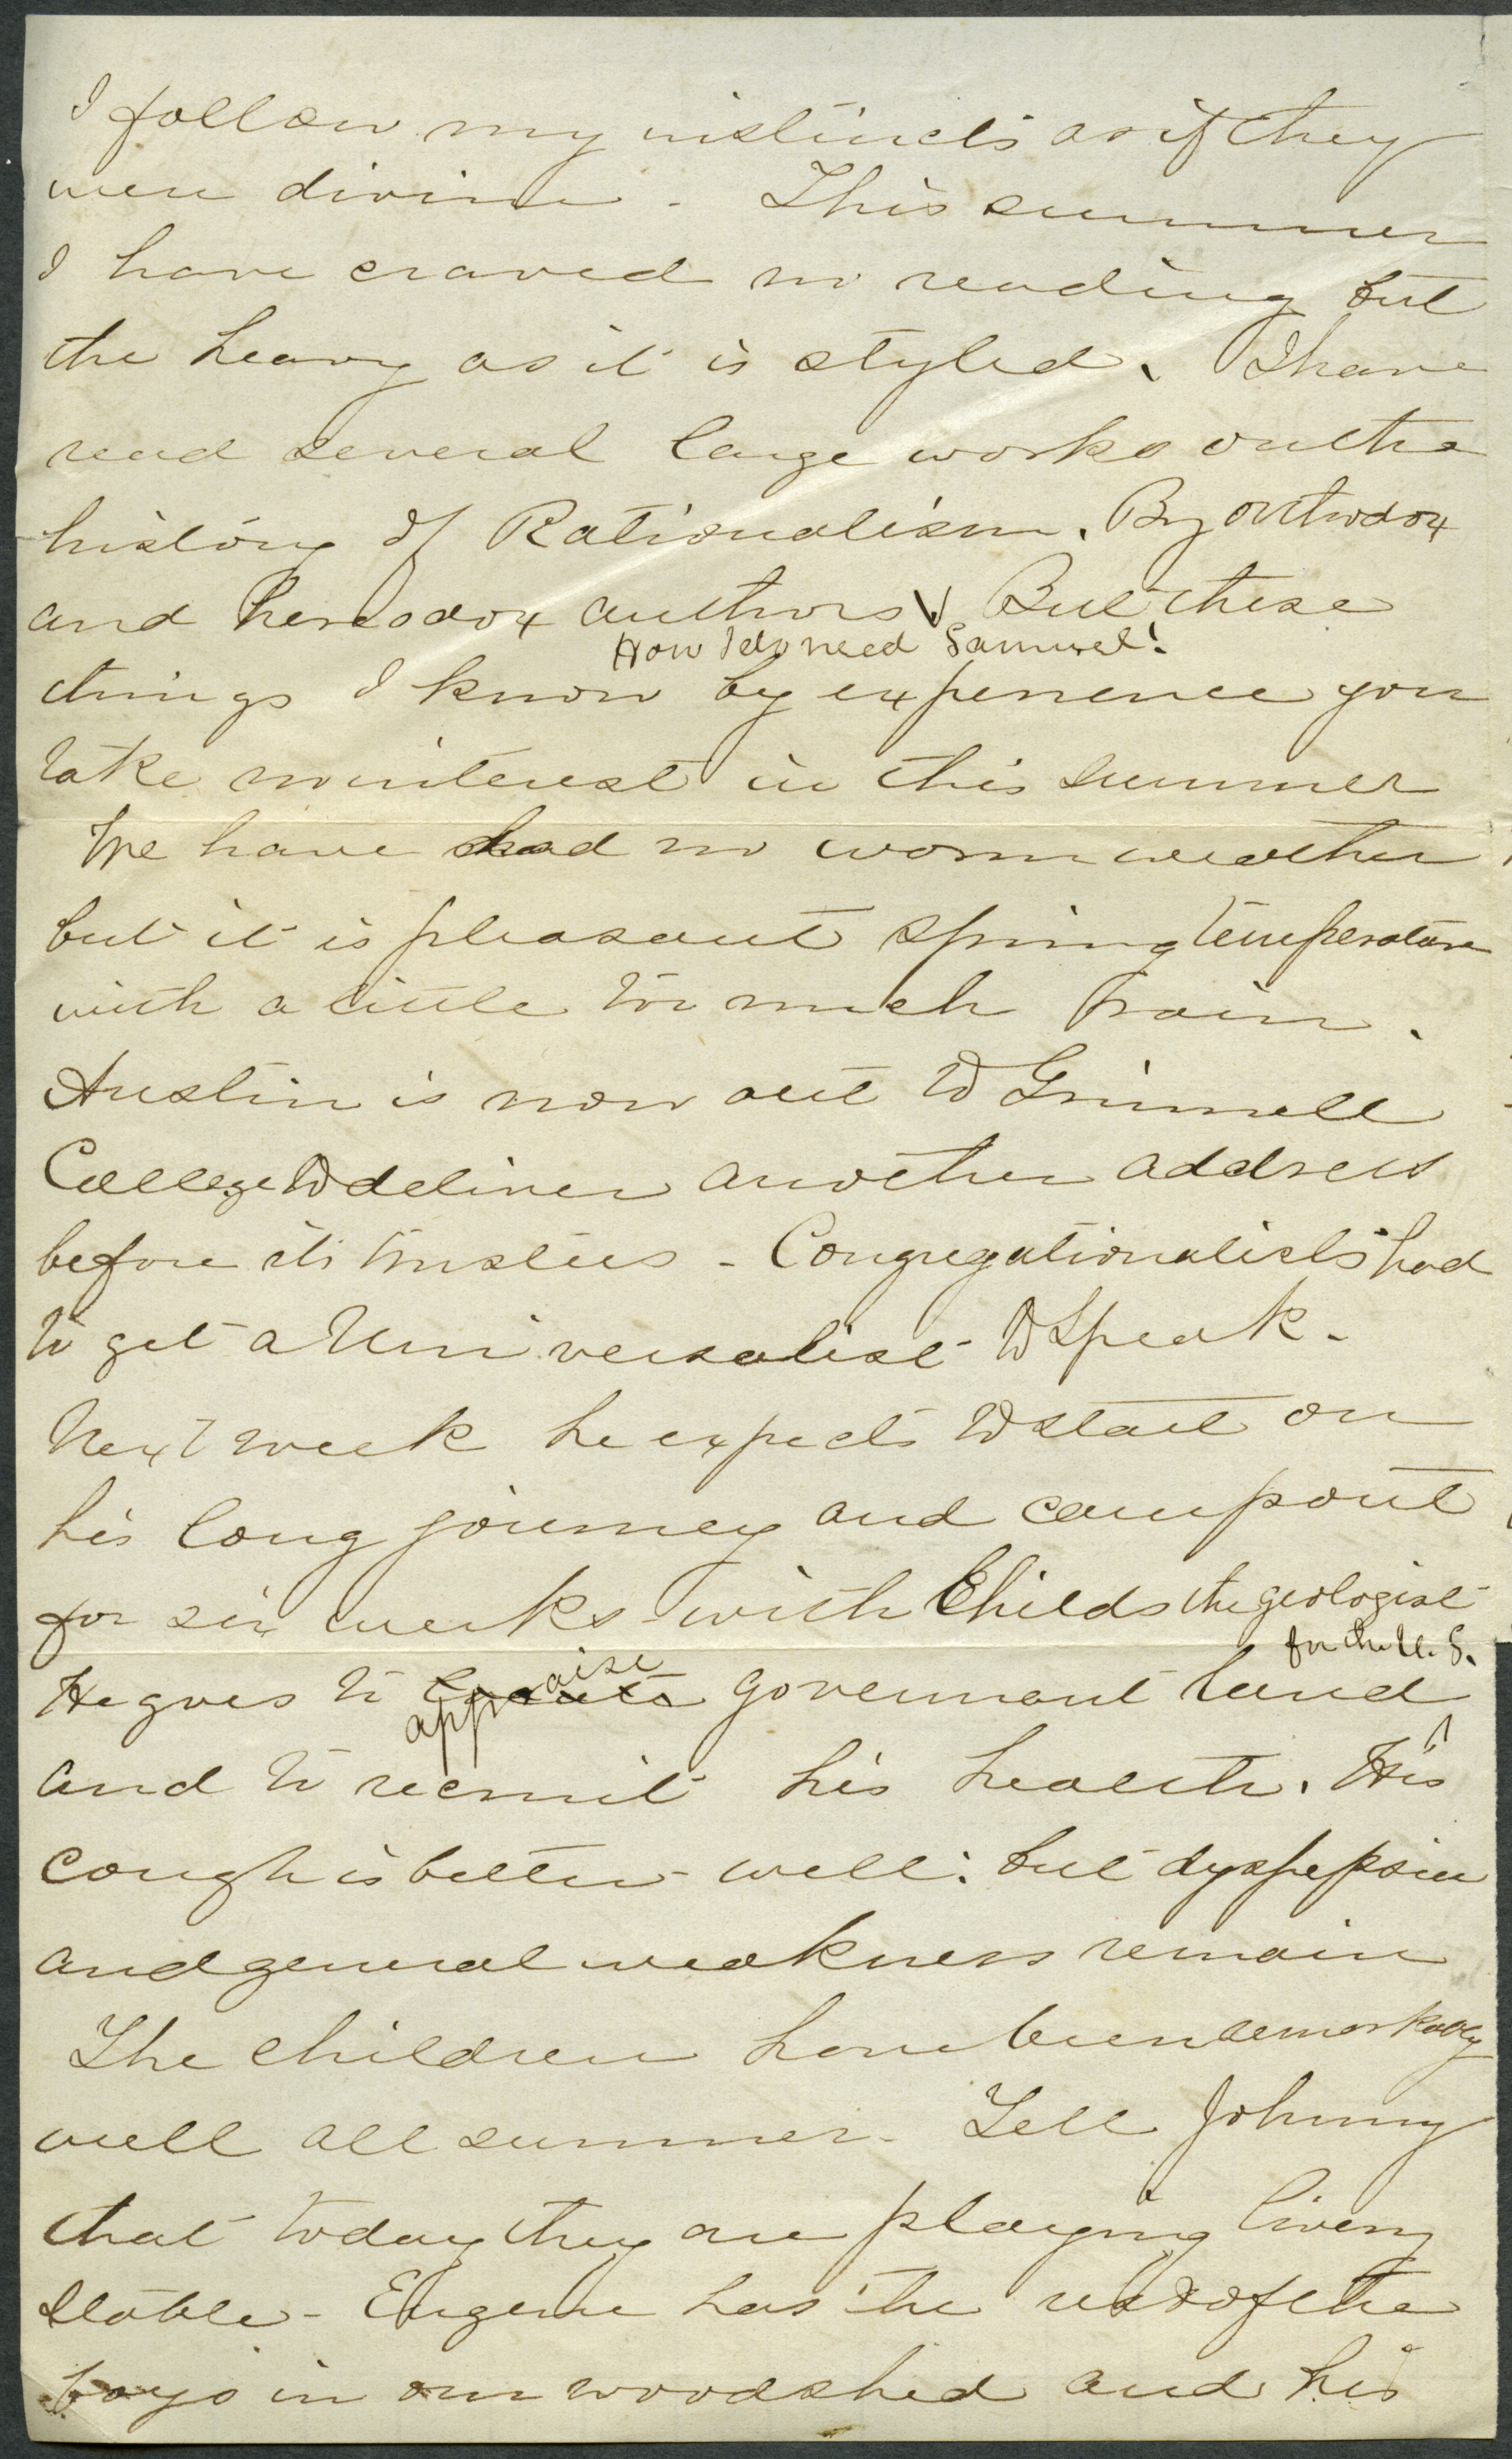 I follow my instincts as if they
were divine - This summer
I have craved no reading but
the heavy as it is styled. I have
read several large works on the
history of Rationalism. By orthodox
and heresodox authors. But these
How I do need Samuel!
things I know by experience you
take no interest in this summer
We have had no warm weather
but it is pleasant spring temperature
with a little too much rain.
Austin is now out to Grinnell
College to deliver another address
before its trustees - Congregationalists had
to get a Universalist to speak -
Next week he expects to start on
his long journey and camp out
for six weeks with Childs the geologist
for the U. S.
He goes to appraise government land
and to recruit his health. His
cough is better - well: but dyspepsia
and general weakness remain
The children have been remarkably
well all summer - Tell Johnny
that today they are playing livery
stable - Eugene has the rest of the
boys in our woodshed and his